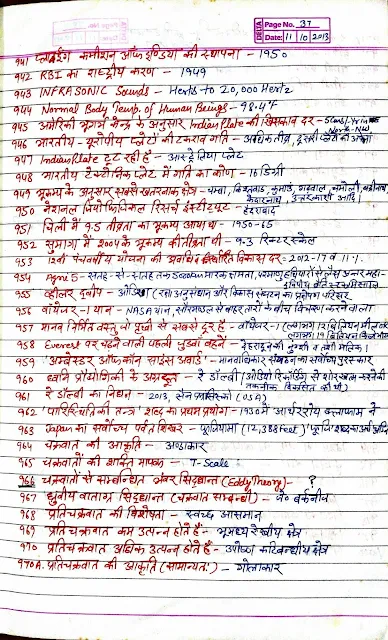 DEVA Page No. 37
Date: 11 10 2013
941 प्लानिंग कमीशन ऑफ इण्डिया की स्थापना - 1950
942 RBI का राष्ट्रीय करण - 1949
943 INFRASONIC Sounds - Hertz to 20,000 Hertz
944 Normal Body Temp. of Human Beings - 98.4°F
945 अमेरिकी भूगर्भ केन्द्र के अनुसार Indian Plate की खिसकाव दर - 5cm/Year North-NW
946 भारतीय-यूरोपीय प्लेटों की टकराव गति - अधिक तीव्र, दूसरी प्लेटों की अपेक्षा
947 Indian Plate टूट रही है - आस्ट्रेलिया प्लेट
948 भारतीय टैक्टोनिक प्लेट में गति का कोण - 16 डिग्री
949 भूकम्प के अनुसार सबसे खतरनाक क्षेत्र - चम्बा, किन्नवाड, कुमाऊं, गढ़वाल, चमोली, बद्रीनाथ, केदारनाथ, उत्तरकाशी आदि।
950 नेशनल जियोफिजिकल रिसर्च इंस्टीट्यूट - हैदराबाद
951 चिली में 9.5 तीव्रता का भूकम्प आया था - 1950-65
952 सुमात्रा में 2004 के भूकम्प की तीव्रता थी - 9.3 रिक्टर स्केल
953 12वीं पंचवर्षीय योजना की अवधि व विकास दर - 2012-17 व 11%
954 Agni 5 - सतह-से-सतह तक 5000km मारक क्षमता, परमाणु हथियारों से लैस अन्तरमहाद्वीपीय बैलेस्टिक मिसाइल
955 व्हीलर द्वीप - ओडिशा (रक्षा अनुसंधान और विकास संगठन का प्रक्षेपण परिसर
956 वायेजर-1 यान - NASA यान, सौरमण्डल से बाहर तारों के बीच विचरण करने वाला
957 मानव निर्मित वस्तु जो पृथ्वी से सबसे दूर है - वायेजर-1 (लगभग 12 बिलियन मील तक लगभग 19 बिलियन किलोमीटर
958 Everest पर चढ़ने वाली पहली जुड़वा बहनें - देहरादून की नुंग्शी व ताशी मलिक।
959 'अम्बेस्डर ऑफ कॉन साइंस अवार्ड' - मानवाधिकार संगठन का सर्वोच्च पुरस्कार
960 ध्वनि प्रौद्योगिकी के अग्रदूत - रे डॉल्बी (ऑडियो रिकॉर्डिंग से शोर खत्म करने की तकनीक विकसित की थी)
961 रे डॉल्बी का निधन - 2013, सेन फ्रांसिस्को (USA)
962 'पारिस्थितिकी तन्त्र' शब्द का प्रथम प्रयोग - 1930 में आर्थर रॉय क्लाफाम ने
963 Japan का सर्वोच्च पर्वत शिखर - फूजियामा (12,388 feet) 'फूजि' शब्द का अर्थ अग्नि
964 चक्रवात की आकृति - अण्डाकार
965 चक्रवातों की शक्ति मापक - T-Scale
966 चक्रवातों से सम्बन्धित भंवर सिद्धान्त (Eddy Theory) - ?
967 ध्रुवीय वाताग्र सिद्धान्त (चक्रवात सम्बन्धी) - जे० बर्कनीज
968 प्रतिचक्रवात की विशेषता - स्वच्छ आसमान
969 प्रतिचक्रवात कम उत्पन्न होते हैं - भूमध्य रेखीय क्षेत्र
970 प्रतिचक्रवात अधिक उत्पन्न होते हैं - उपोष्ण कटिबन्धीय क्षेत्र
970A. प्रतिचक्रवात की आकृति (सामान्यतः) - गोलाकार